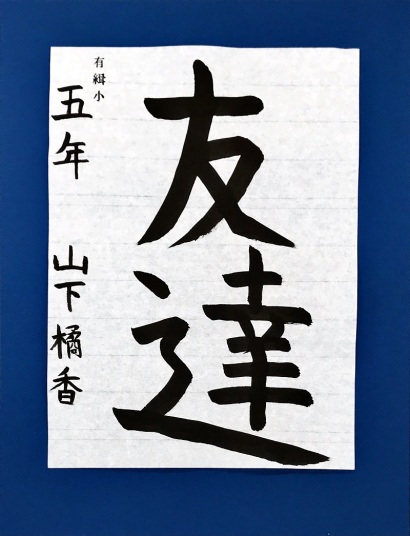 友達
有緝小
五年 山下橘香